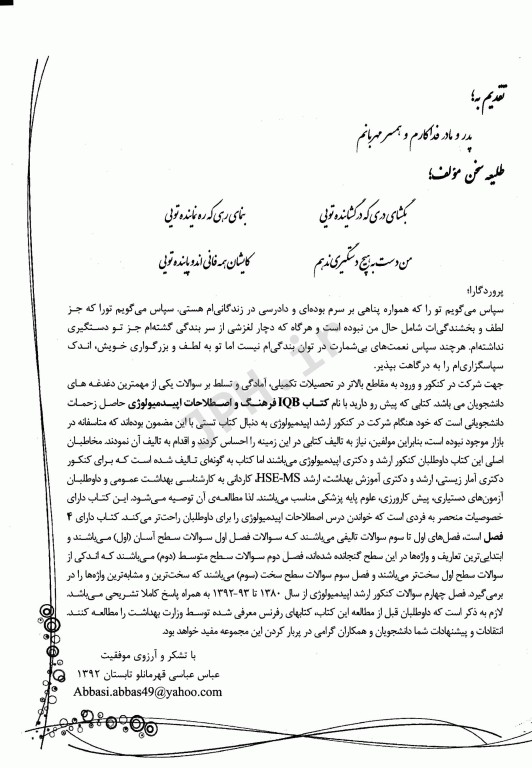 تقدیم به؛
پدر و مادر فداکارم و همسر مهربانم
طلیعه سخن مؤلف؛
بگشای دری که در گشاینده تویی
بنمای رهی که ره نماینده تویی
من دست به هیچ دستگیری ندهم
کایشان همه فانی اند و پاینده تویی
پروردگارا؛
سپاس می‌گویم تو را که همواره پناهی بر سرم بوده‌ای و دادرسی در زندگانی‌ام هستی. سپاس می‌گویم تورا که جز
لطف و بخشندگی‌ات شامل حال من نبوده است و هرگاه که دچار لغزشی از سر بندگی گشته‌ام جز تو دستگیری
نداشته‌ام. هرچند سپاس نعمت‌های بی‌شمارت در توان بندگی‌ام نیست اما تو به لطف و بزرگواری خویش، اندک
سپاسگزاری‌ام را به درگاهت بپذیر.
جهت شرکت در کنکور و ورود به مقاطع بالاتر در تحصیلات تکمیلی، آمادگی و تسلط بر سوالات یکی از مهمترین دغدغه های
دانشجویان می باشد. کتابی که پیش رو دارید با نام کتاب IQB فرهنگ و اصطلاحات اپیدمیولوژی حاصل زحمات
دانشجویانی است که خود هنگام شرکت در کنکور ارشد اپیدمیولوژی به دنبال کتاب تستی با این مضمون بوده‌اند که متاسفانه در
بازار موجود نبوده است، بنابراین مولفین، نیاز به تالیف کتابی در این زمینه را احساس کردند و اقدام به تالیف آن نمودند. مخاطبان
اصلی این کتاب داوطلبان کنکور ارشد و دکتری اپیدمیولوژی می‌باشند اما کتاب به گونه‌ای تالیف شده است که برای کنکور
دکتری آمار زیستی، ارشد و دکتری آموزش بهداشت، ارشد HSE-MS، کاردانی به کارشناسی بهداشت عمومی و داوطلبان
آزمون‌های دستیاری، پیش کارورزی، علوم پایه پزشکی مناسب می‌باشند. لذا مطالعه‌ی آن توصیه می‌شود. این کتاب دارای
خصوصیات منحصر به فردی است که خواندن درس اصطلاحات اپیدمیولوژی را برای داوطلبان راحت‌تر می‌کند. کتاب دارای ۴
فصل است، فصل‌های اول تا سوم سوالات تالیفی می‌باشند که سوالات فصل اول سوالات سطح آسان (اول) می‌باشند و
ابتدایی‌ترین تعاریف و واژه‌ها در این سطح گنجانده شده‌اند، فصل دوم سوالات سطح متوسط (دوم) می‌باشند که اندکی از
سوالات سطح اول سخت‌تر می‌باشند و فصل سوم سوالات سطح سخت (سوم) می‌باشند که سخت‌ترین و مشابه‌ترین واژه‌ها را در
برمی‌گیرد. فصل چهارم سوالات کنکور ارشد اپیدمیولوژی از سال ۱۳۸۰ تا ۹۳-۱۳۹۲ به همراه پاسخ کاملا تشریحی می‌باشد.
لازم به ذکر است که داوطلبان قبل از مطالعه این کتاب، کتابهای رفرنس معرفی شده توسط وزارت بهداشت را مطالعه کنند.
انتقادات و پیشنهادات شما دانشجویان و همکاران گرامی در پربار کردن این مجموعه مفید خواهد بود.
با تشکر و آرزوی موفقیت
عباس عباسی قهرمانلو تابستان ۱۳۹۲
Abbasi.abbas49@yahoo.com